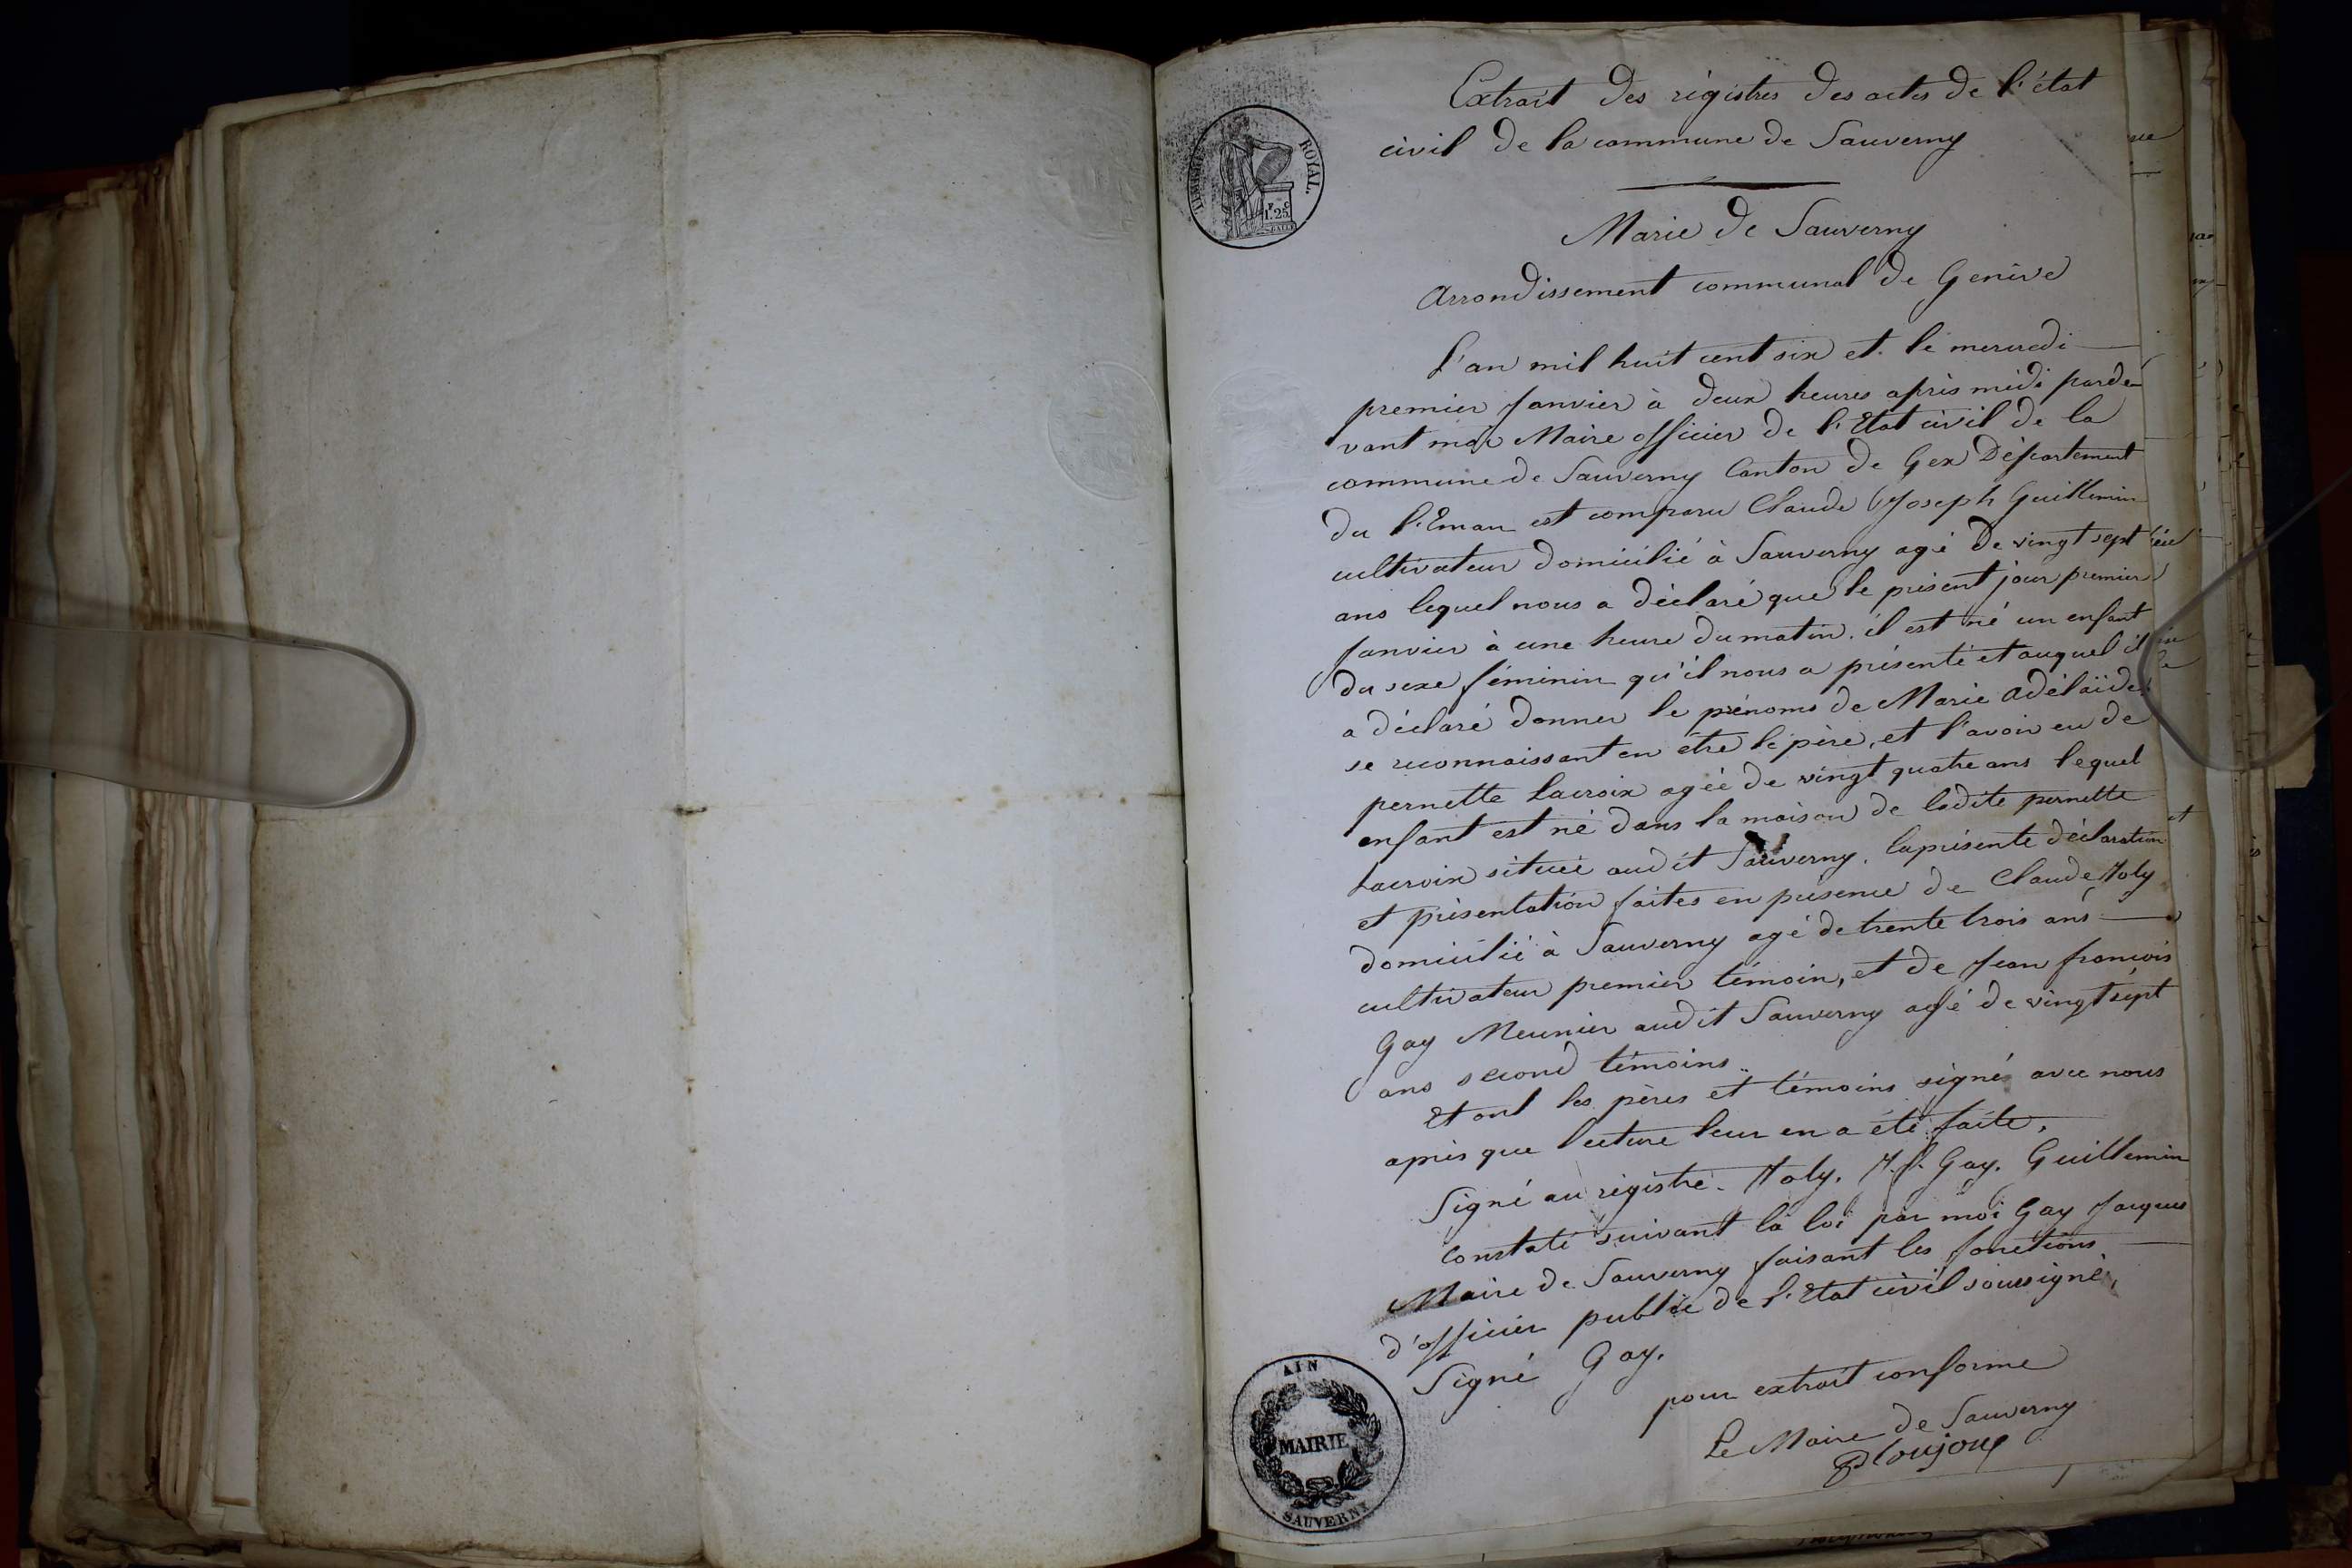 TIMBRE ROYAL.
F C
1.25
Extrait des régistres des actes de l'état
civil de la commune de Sauverny
Marie de Sauverny
Arrondissement communal de Genève
L'an mil huit cent six et le mercredi
premier Janvier à deux heures après midi parde-
vant moi Maire officier de l'Etat civil de la
commune de Sauverny Canton de Gex Département
du l'Eman est comparu Claude Joseph Guillemin
cultivateur domicilié à Sauverny agé de vingt sept
ans lequel nous a déclaré que le présent jour premier
Janvier à une heure du matin. il est né un enfant
du sexe féminin qu'il nous a présenté et auquel il
a déclaré donner le prénoms de Marie Adélaïde,
se reconnaissant en être le père, et l'avoir eu de
pernette Lacroix agée de vingt quatre ans lequel
enfant est né dans la maison de ladite pernette
Lacroix située audit Sauverny. la présente déclaration
et présentation faites en présence de Claude Joly
domicilié à Sauverny agé de trente trois ans
cultivateur premier témoin, et de Jean françois
Gay Meunier audit Sauverny agé de vingt sept
ans second témoins..
Et ont les pères et témoins signés avec nous
après que lecture leur en a été faite.
Signé au régistre. Joly. J. f. Gay. Guillemin
Constaté suivant la loi par moi Gay Jacques
Maire de Sauverny faisant les fonctions
d'officier public de l'Etat civil soussigné,
Signé Gay.
pour extrait conforme
Le Maire de Sauverny
AIN
MAIRIE
SAUVERNY